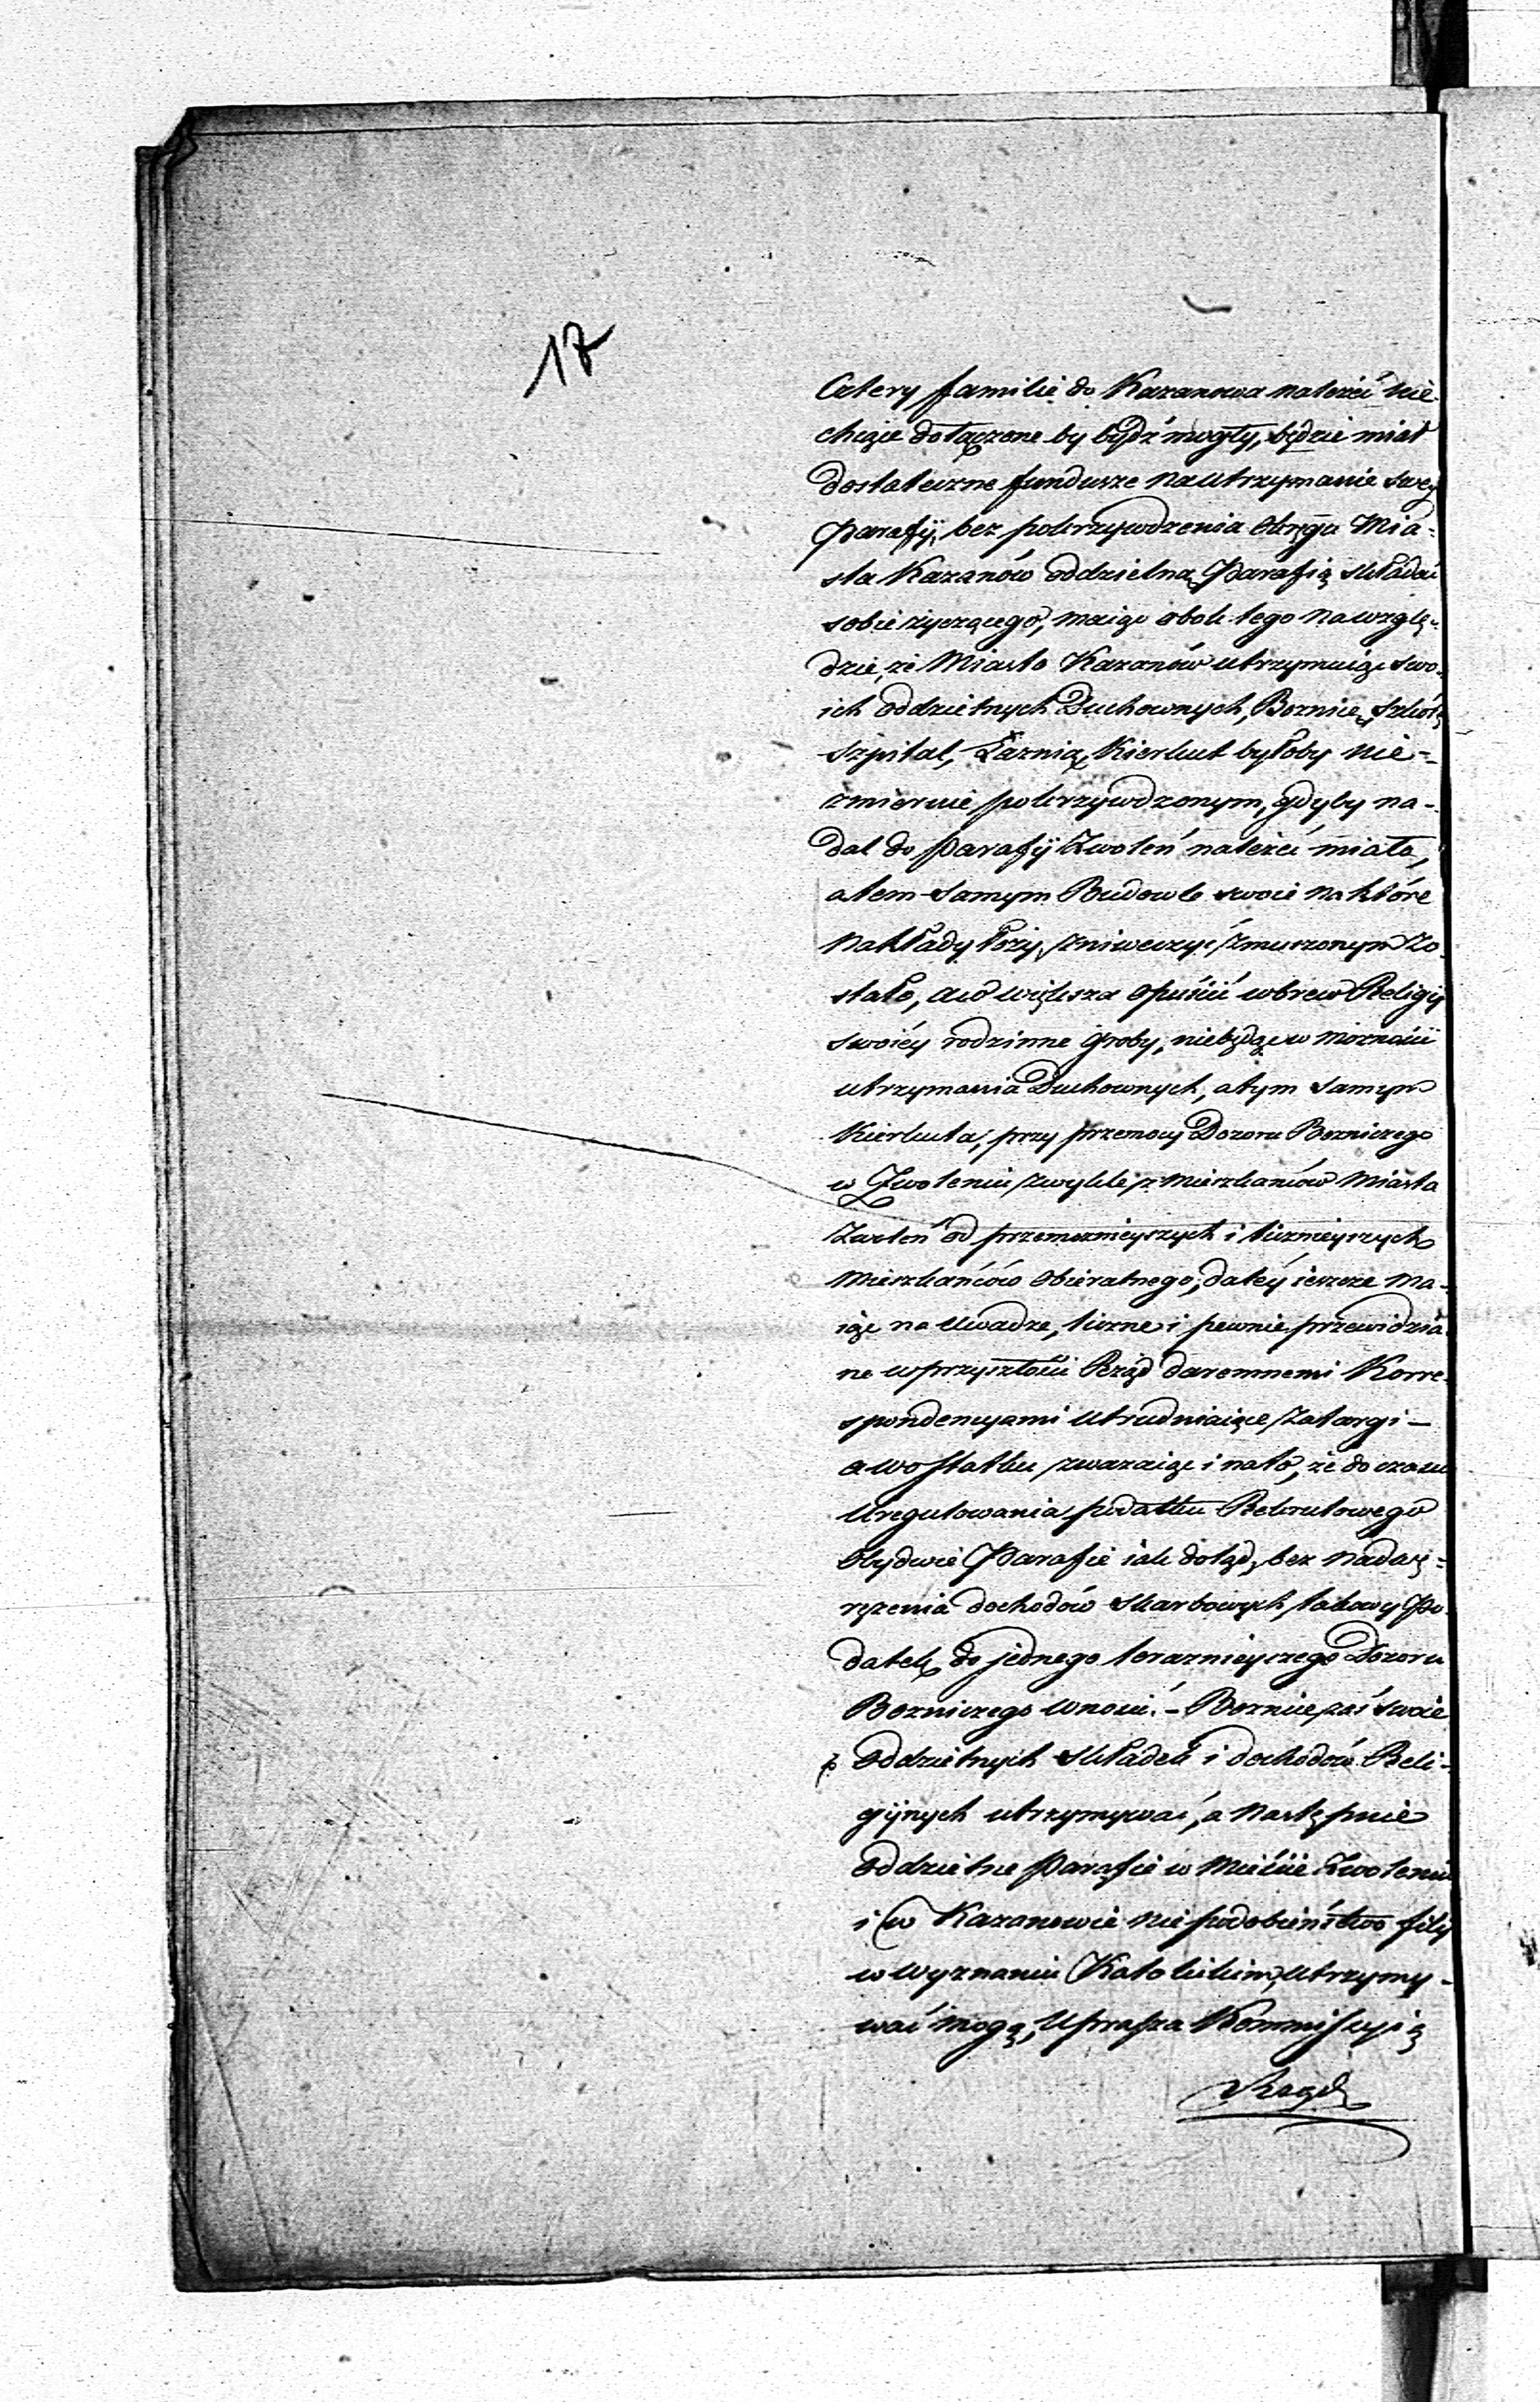 17
Cztery familie do Kazanowa należeć nie
chcące dołączone by bydź mogły, będzie miał
dostateczne fundusze na utrzymanie swey
Parafij, bez pokrzywdzenia Okręgu Mia-
sta Kazanów oddzielną Parafią składać
sobie życzącego, maiąc obok tego na wzglę-
dzie, że Miasto Kazanów utrzymuiąc swo-
ich oddzielnych Duchownych, Boznicę, Szkołę
szpital, Łaznią, Kierkut byłoby nie-
zmiernie pokrzywdzonym, gdyby na-
dal do Parafij Zwoleń należeć miało,
a tem samym Budowle swoie na które
nakłady łoży, zniweczyć zmuszonym zo-
stało, a co większa opuścić wbrew Religij
swoiéy rodzinne groby, niebędąc w możności
utrzymania Duchownych, a tym samym
Kierkuta, przy przemocy Dozoru Bozniczego
w Zwoleniu zwykle z Mieszkańców Miasta
Zwoleń od przemożnieyszych i licznieyszych
Mieszkańców obieralnego, daléy ieszcze ma-
iąc na uwadze, liczne i pewnie przewidzia-
ne w przyszłości Rząd daremnemi Korre-
spondencyami utrudniaiące zatargi —
a wostatku zważaiąc i na to, że do czasu
Uregulowania podatku Rekrutowego
Obydwie Parafie iak dotąd, bez nadwę-
rężenia dochodów skarbowych, takowy Po-
datek do jednego teraznieyszego Dozoru
Bozniczego wnosić. – Boznice zaś swoie
z Oddzielnych składek i dochodów Reli-
gijnych utrzymywać, a następnie
oddzielne Parafie w Mieście Zwoleniu
i w Kazanowie na podobieństwo filij
w wyznaniu Katolickim, utrzymy-
wać mogą, uprasza Kommissyię
Rząd